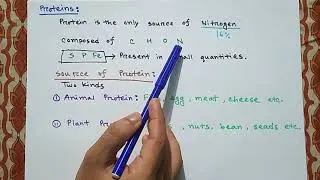 Proteins:
Protein is the only source of Nitrogen
16%
composed of C H O N
S P Fe → Present in small quantities.
source of Protein:
Two kinds
① Animal Protein: egg, meat, cheese etc.
② Plant nuts, bean, seads etc.